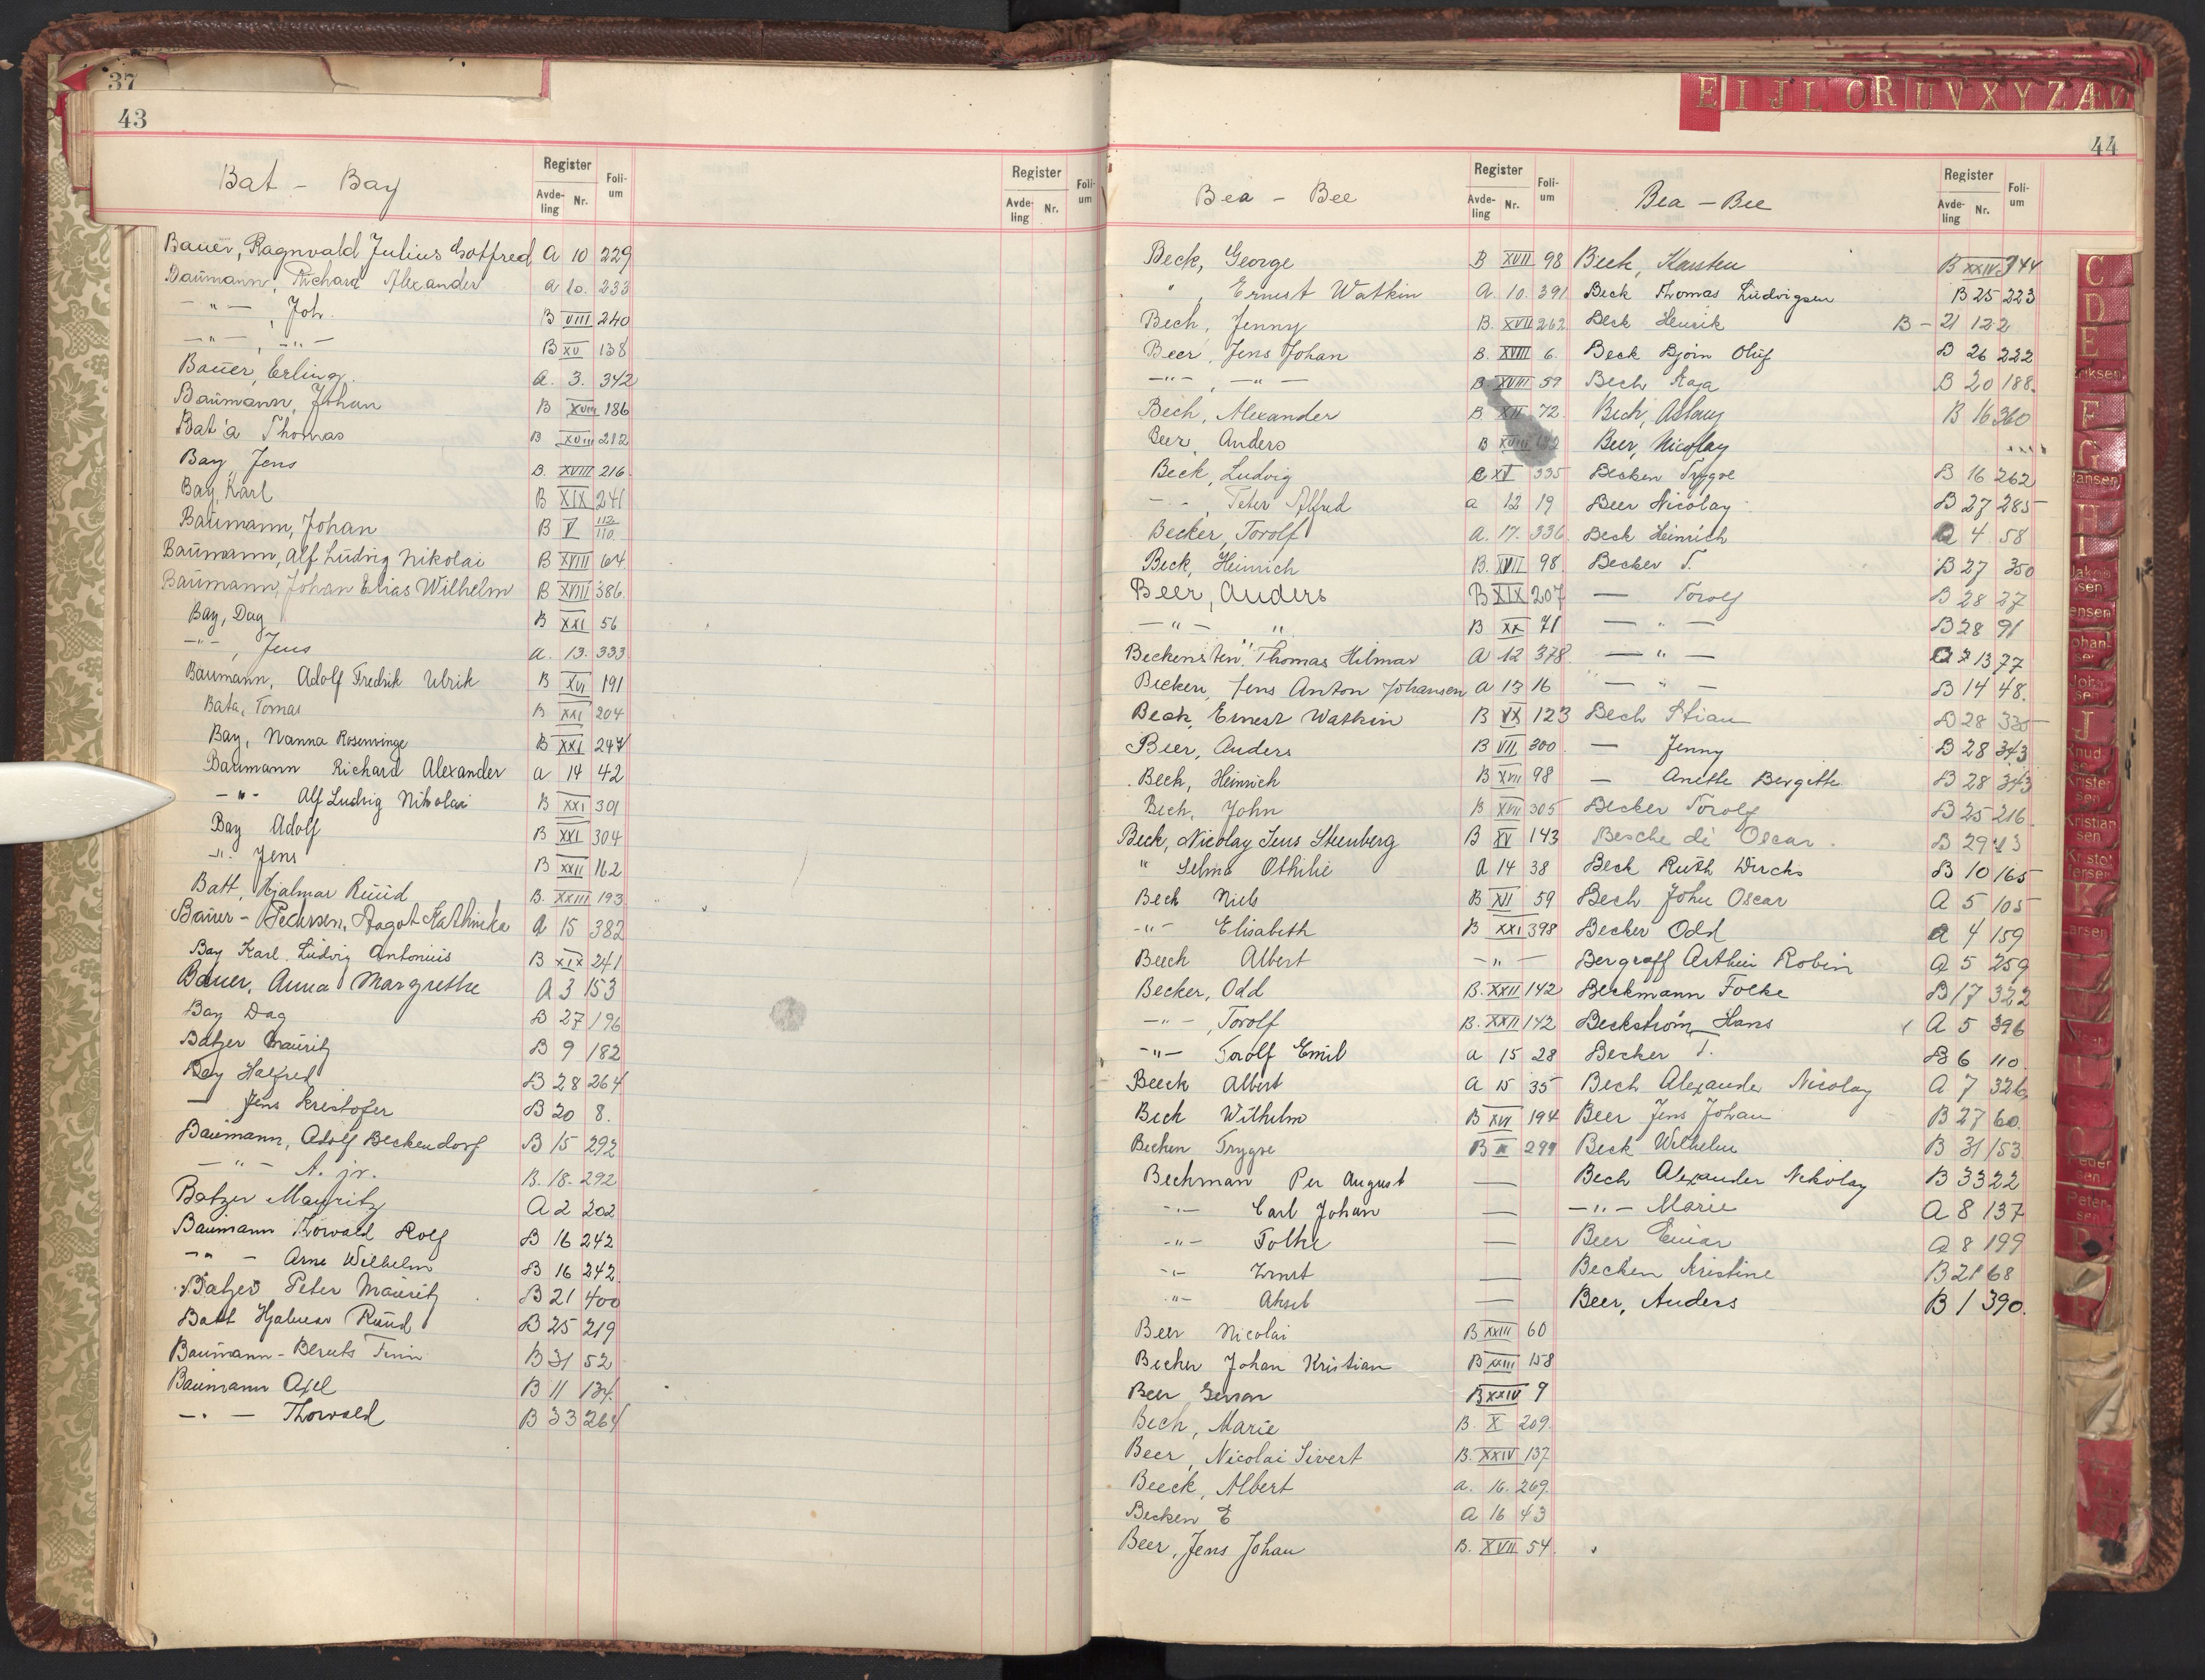 37
43
Bat - Bay
Register
Avde-ling Nr. Foli-um
Register
Avde-ling Nr. Foli-um
Bauer, Ragnvald Julius Gottfred A 10 229
Baumann, Richard Alexander a 10. 233
-"- , Joh. B VIII 240
-"- , -"- B XV 138
Bauer, Erling. a. 3. 342
Baumann, Johan B XVIII 186
Bat'a Thomas B XVIII 212
Bay, Jens B. XVIII 216.
Bay, Karl B XIX 241
Baumann, Johan B V 112 110.
Baumann, Alf Ludvig Nikolai B XVIII 64
Baumann, Johan Elias Wilhelm B XVIII 386.
Bay, Dag B XXI 56
-"- , Jens a. 13. 333
Baumann, Adolf Fredrik Ulrik B XVI 191
Bata, Tomas B XXI 204
Bay, Nanna Rosenvinge B XXI 247
Baumann Richard Alexander a 14 42
-"- Alf Ludvig Nikolai B XXI 301
Bay Adolf B XXI 304
-"- Jens B XXII 162
Batt, Hjalmar Ruud B. XXIII 193
Bauer - Pedersen, Dagot Kathinka a 15 382
Bay Karl Ludvig Antonius B XIX 241
Bauer, Anna Margrethe A 3 153
Bay Dag B 27 196
Batzer Mauritz B 9 182
Bay Halfred B 28 264
- Jens Kristofer B 20 8.
Baumann, Adolf Beckendorf B 15 292
-"- A. jr. B. 18. 292
Batzer Mauritz A 2 202
Baumann Thorvald Rolf B 16 242
-"- Arne Wilhelm B 16 242
Batzer Peter Mauritz B 21 400
Batt Hjalmar Ruud B 25 219
Baumann - Bleuts Finn B 31 52
Baumann Axel B 11 134.
-"- Thorvald B 33 264
E I J L O R U V X Y Z Æ
44
Bea - Bee
Register
Avde-ling Nr. Foli-um
Beck, George B XVII 98
" , Ernest Watkin A. 10. 391
Bech, Jenny B. XVII 262
Beer, Jens Johan B. XVIII 6.
-"- , -"- B XVIII 59
Bech, Alexander B XII 72.
Beer, Anders B XVIII
Beck, Ludvig XI 335
-"- , Peter Alfred a 12 19
Becker, Torolf a. 17. 336.
Beck, Heinrich B. XVII 98.
Beer, Anders B XIX 207
-"- " B XX 71
Beckensten, Thomas Hilmar a 12 378.
Becken, Jens Anton Johansen a 13 16
Beck, Ernest Watkin B 123
Beer, Anders B VII 300.
Beck, Heinrich B XVII 98
Bech, John B XVII 305
Beck, Nicolay Jens Steenberg B XV 143
" Selma Othilie a 14 38
Beck Niels B XI 59
-"- Elisabeth B XXI 398
Beeck Albert -"-
Becker, Odd B. XXII 142
-"- , Torolf B. XXII 142
-"- Torolf Emil a 15 28
Beeck Albert a 15 35
Beck Wilhelm B XVI 194
Becken Trygve B 299
Bechman Per August —
-"- Carl Johan —
-"- Folke —
-"- Ernst —
-"- Aksel —
Beer Nicolai B XXIII 60
Becher Johan Kristian B XXIII 158
Beer Gunnar B XXIV 9
Bech, Marie B. X 209.
Beer, Nicolai Sivert B. XXIV 137
Beeck, Albert a. 16. 269.
Becken E a 16 43
Beer, Jens Johan B. XVII 54.
Bea - Bee
Register
Avde-ling Nr. Foli-um
Beck, Karsten B XXIV 344
Beck Thomas Ludvigsen B 25 223
Beck Henrik B - 21 122
Beck Bjørn Oluf B 26 222
Bech Kaja B 20 188.
Bech, Aslaug B 16 360
Beer, Nicolay
Becken Trygve B 16 262
Beer Nicolay B 27 285
Beck Heinrich A 4 58
Becker T. B 27 350
— Torolf B 28 27
— " — B 28 91
— " — 13 77
— " — B 14 48.
Bech Stian B 28 335
— Jenny B 28 343
— Anethe Bergithe B 28 343
Becker Torolf B 25 216.
Besche de' Oscar. B 29 43
Beck Ruth Wirchs B 10 165
Bech John Oscar A 5 105
Becker Odd A 4 159
Bergraff Arthur Robin A 5 259
Beckmann Folke B 17 322
Beckstrøm Hans A 5 396
Becker T. B 6 110
Bech Alexander Nicolay A. 7 326
Beer Jens Johan B 27 60.
Beck Wilhelm B 31 153
Bech Alexander Nikolay B 33 22
-"- Marie A 8 137
Beer Einar A 8 199
Becken Kristine B 21 68
Beer, Anders B 1 390.
C
D
E
Eriksen
F
G
Hansen
H
I
Jakob sen
Jensen
Johan sen
J
Knud sen
Kristen sen
Kristian sen
Kristof fersen
K
Larsen
Peder sen
Peter sen